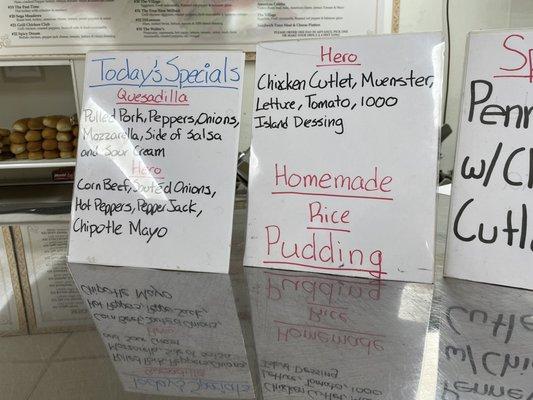 Today's Specials
Quesadilla
Pulled Pork, Peppers, Onions,
Mozzarella, Side of salsa
and Sour Cream
Hero
Corn Beef, Sauted Onions,
Hot Peppers, Pepper Jack,
Chipotle Mayo
Hero
Chicken Cutlet, Muenster,
Lettuce, Tomato, 1000
Island Dressing
Homemade
Rice
Pudding
Sp
Penn
w/Ch
Cutl